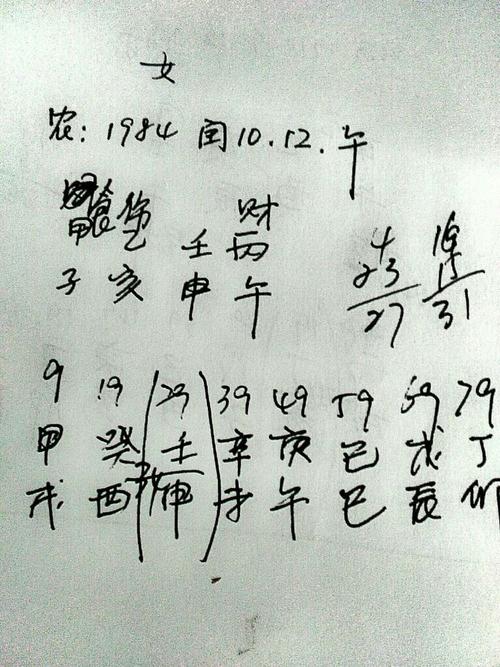 女
农: 1984 闰10.12.午
食 伤 财
甲 乙 壬 丙
子 亥 申 午
4 16
23 15
27 31
9 19 29 39 49 59 69 79
甲 癸 壬 辛 庚 已 戊 丁
戌 酉 申 未 午 巳 辰 卯